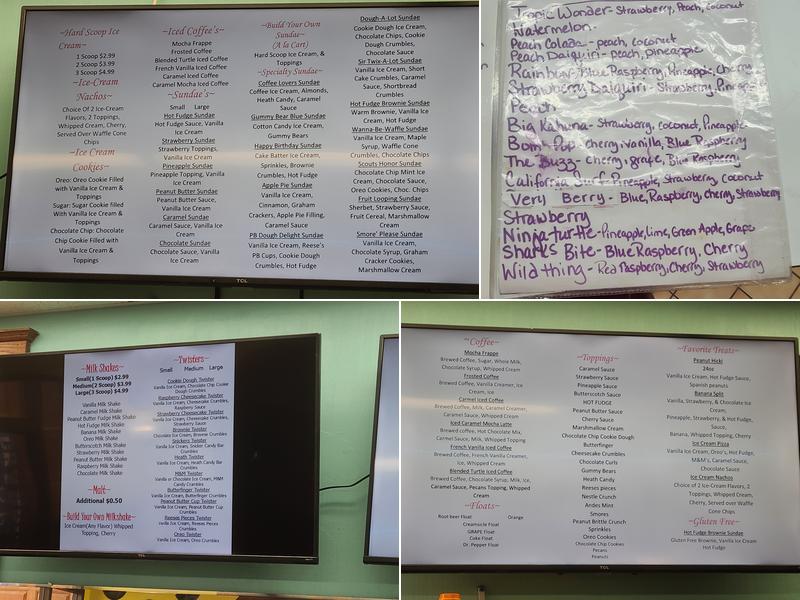 ~Hard Scoop Ice
Cream~
1 Scoop $2.99
2 Scoop $3.99
3 Scoop $4.99
~Ice-Cream
Nachos~
Choice Of 2 Ice-Cream
Flavors, 2 Toppings,
Whipped Cream, Cherry,
Served Over Waffle Cone
Chips
~Ice Cream
Cookies~
Oreo: Oreo Cookie Filled
with Vanilla Ice Cream &
Toppings
Sugar: Sugar Cookie filled
With Vanilla Ice Cream &
Toppings
Chocolate Chip: Chocolate
Chip Cookie Filled with
Vanilla Ice Cream &
Toppings
~Iced Coffee's~
Mocha Frappe
Frosted Coffee
Blended Turtle Iced Coffee
French Vanilla Iced Coffee
Caramel Iced Coffee
Caramel Mocha Iced Coffee
~Sundae's~
Small Large
Hot Fudge Sundae
Hot Fudge Sauce, Vanilla
Ice Cream
Strawberry Sundae
Strawberry Toppings,
Vanilla Ice Cream
Pineapple Sundae
Pineapple Topping, Vanilla
Ice Cream
Peanut Butter Sundae
Peanut Butter Sauce,
Vanilla Ice Cream
Caramel Sundae
Caramel Sauce, Vanilla Ice
Cream
Chocolate Sundae
Chocolate Sauce, Vanilla
Ice Cream
~Build Your Own
Sundae~
(A la Cart)
Hard Scoop Ice Cream, &
Toppings
~Specialty Sundae~
Coffee Lovers Sundae
Coffee Ice Cream, Almonds,
Heath Candy, Caramel
Sauce
Gummy Bear Blue Sundae
Cotton Candy Ice Cream,
Gummy Bears
Happy Birthday Sundae
Cake Batter Ice Cream,
Sprinkles, Brownie
Crumbles, Hot Fudge
Apple Pie Sundae
Vanilla Ice Cream,
Cinnamon, Graham
Crackers, Apple Pie Filling,
Caramel Sauce
PB Dough Delight Sundae
Vanilla Ice Cream, Reese's
PB Cups, Cookie Dough
Crumbles, Hot Fudge
Dough-A-Lot Sundae
Cookie Dough Ice Cream,
Chocolate Chips, Cookie
Dough Crumbles,
Chocolate Sauce
Sir Twix-A-Lot Sundae
Vanilla Ice Cream, Short
Cake Crumbles, Caramel
Sauce, Shortbread
Crumbles
Hot Fudge Brownie Sundae
Warm Brownie, Vanilla Ice
Cream, Hot Fudge
Wanna-Be-Waffle Sundae
Vanilla Ice Cream, Maple
Syrup, Waffle Cone
Crumbles, Chocolate Chips
Scouts Honor Sundae
Chocolate Chip Mint Ice
Cream, Chocolate Sauce,
Oreo Cookies, Choc. Chips
Fruit Looping Sundae
Sherbet, Strawberry Sauce,
Fruit Cereal, Marshmallow
Cream
Smore' Please Sundae
Vanilla Ice Cream,
Chocolate Syrup, Graham
Cracker Cookies,
Marshmallow Cream
TCL
Tropic Wonder- Strawberry, Peach, Coconut
Watermelon-
Peach Colada - peach, coconut
Peach Daiquiri - peach, pineapple
Rainbow- Blue Raspberry, Pineapple, Cherry
Strawberry Daiquiri - Strawberry, Pineap
Peach
Big Kahuna- Strawberry, coconut, Pineapple
Bom-Pop- cherry, vanilla, Blue Raspberry
The Buzz- Cherry, grape, Blue Raspberry
California Surf- Pineapple, Strawberry, Coconut
Very Berry- Blue, Raspberry, cherry, Strawberry
Strawberry
Ninja turtle- Pineapple, Lime, Green Apple, Grape
Sharks Bite- Blue Raspberry, Cherry
Wild thing- Red Raspberry, Cherry, Strawberry
~Milk Shakes~
Small(1 Scoop) $2.99
Medium(2 Scoop) $3.99
Large(3 Scoop) $4.99
Vanilla Milk Shake
Caramel Milk Shake
Peanut Butter Fudge Milk Shake
Hot Fudge Milk Shake
Banana Milk Shake
Oreo Milk Shake
Butterscotch Milk Shake
Strawberry Milk Shake
Peanut Butter Milk Shake
Raspberry Milk Shake
Chocolate Milk Shake
~Malt~
Additional $0.50
~Build Your Own Milkshake~
Ice Cream(Any Flavor) Whipped
Topping, Cherry
~Twisters~
Small Medium Large
Cookie Dough Twister
Vanilla Ice Cream, Chocolate Chip Cookie
Dough Crumbles
Raspberry Cheesecake Twister
Vanilla Ice Cream, Cheesecake Crumbles,
Raspberry Sauce
Strawberry Cheesecake Twister
Vanilla Ice Cream, Cheesecake Crumbles,
Strawberry Sauce
Brownie Twister
Chocolate Ice Cream, Brownie Crumbles
Snickers Twister
Vanilla Ice Cream, Snicker Candy Bar
Crumbles
Heath Twister
Vanilla Ice Cream, Heath Candy Bar
Crumbles
M&M Twister
Vanilla or Chocolate Ice Cream, M&M
Candy Crumbles
Butterfinger Twister
Vanilla Ice Cream, Butterfinger Crumbles
Peanut Butter Cup Twister
Vanilla Ice Cream, Peanut Butter Cup
Crumbles
Reeses Pieces Twister
Vanilla Ice Cream, Reeses Pieces
Crumbles
Oreo Twister
Vanilla Ice Cream, Oreo Crumbles
TCL
~Coffee~
Mocha Frappe
Brewed Coffee, Sugar, Whole Milk,
Chocolate Syrup, Whipped Cream
Frosted Coffee
Brewed Coffee, Vanilla Creamer, Ice
Cream, Ice
Carmel Iced Coffee
Brewed Coffee, Milk, Caramel Creamer,
Caramel Sauce, Whipped Cream
Iced Caramel Mocha Latte
Brewed coffee, Hot Chocolate Mix,
Carmel Sauce, Milk, Whipped Topping
French Vanilla Iced Coffee
Brewed Coffee, French Vanilla Creamer,
Ice, Whipped Cream
Blended Turtle Iced Coffee
Brewed Coffee, Chocolate Syrup, Milk, Ice,
Caramel Sauce, Pecans Topping, Whipped
Cream
~Floats~
Root beer Float Orange
Creamsicle Float
GRAPE Float
Coke Float
Dr. Pepper Float
~Toppings~
Caramel Sauce
Strawberry Sauce
Pineapple Sauce
Butterscotch Sauce
HOT FUDGE
Peanut Butter Sauce
Cherry Sauce
Marshmallow Cream
Chocolate Chip Cookie Dough
Butterfinger
Cheesecake Crumbles
Chocolate Curls
Gummy Bears
Heath Candy
Reeses pieces
Nestle Crunch
Andes Mint
Smores
Peanut Brittle Crunch
Sprinkles
Oreo Cookies
Chocolate Chip Cookies
Pecans
Peanuts
~Favorite Treats~
Peanut Hicki
24oz
Vanilla Ice Cream, Hot Fudge Sauce,
Spanish peanuts
Banana Split
Vanilla, Strawberry, & Chocolate Ice
Cream,
Pineapple, Strawberry, & Hot Fudge,
Sauce,
Banana, Whipped Topping, Cherry
Ice Cream Pizza
Vanilla Ice Cream, Oreo's, Hot Fudge,
M&M's, Caramel Sauce,
Chocolate Sauce
Ice Cream Nachos
Choice of 2 Ice-Cream Flavors, 2
Toppings, Whipped Cream,
Cherry, Served over Waffle
Cone Chips
~Gluten Free~
Hot Fudge Brownie Sundae
Gluten Free Brownie, Vanilla Ice Cream
Hot Fudge
TCL